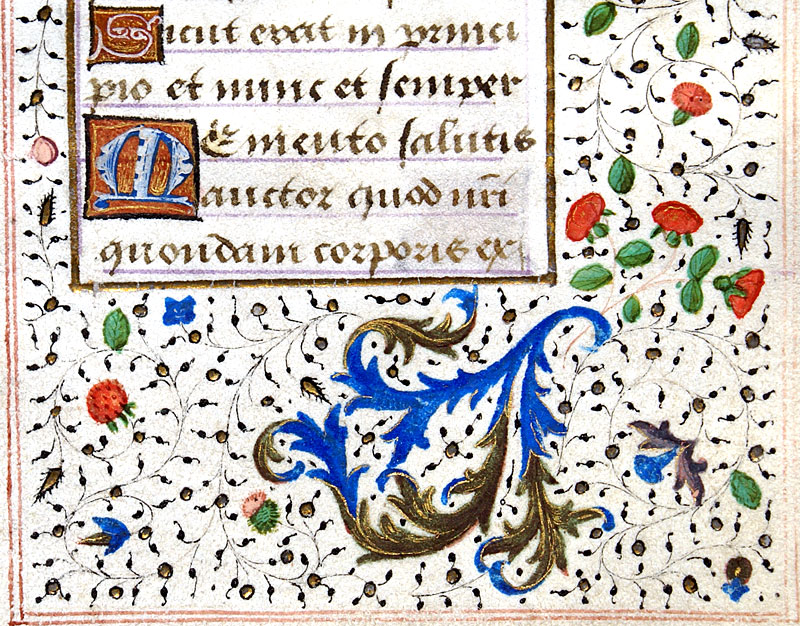 Sicut erat in princi
pio et nunc et semper
Memento salutis
auctor quod nr̄i
quondam corporis ex